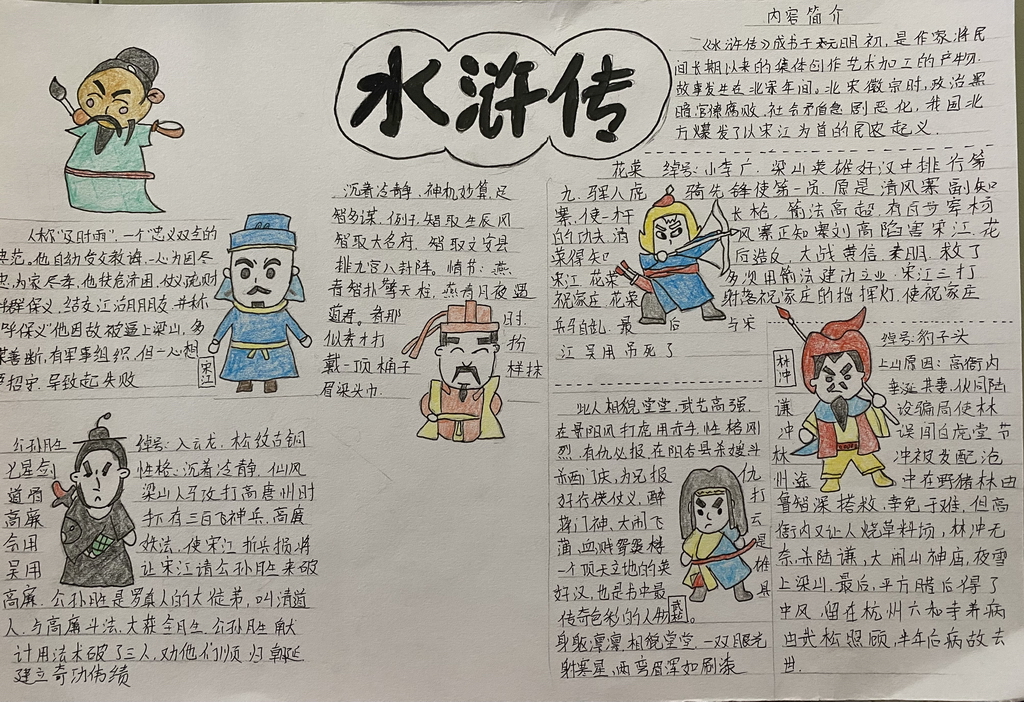 水浒传
内容简介
《水浒传》成书于元明初，是作家将民
间长期以来的集体创作艺术加工的产物.
故事发生在北宋年间。北宋徽宗时，政治黑
暗，官僚腐败，社会矛盾急剧恶化，我国北
方爆发了以宋江为首的民农起义.
人称"及时雨"，一个忠义双全的
典范。他自幼受文教裤，一心为国尽
忠，为家尽孝，他扶危济困，仗义疏财
结交江湖朋友，并称
"呼保义"他因故被逼上梁山，多
谋善断，有军事组织，但一心想
招安，导致起失败
宋江
沉着冷静，神机妙算，足
智多谋，例子，智取生辰冈
智取大名府，智取文安县
排九宫八卦阵。情节：燕
青智扑擎天柱，燕青月夜遇
道君。看那 时，
似秀才打 扮
戴一顶桶子 样抹
眉梁头巾.
花荣 绰号：小李广，梁山英雄好汉中排行第
九，骠骑先锋使第一员，原是清风寨副知
寨，使一杆 长枪，箭法高超，有百步穿杨
的功夫，清 风寨正知寨刘高陷害宋江，花
荣得知 后造反，大战黄信、秦明，救了
宋江，花荣 多次用箭法建功立业，宋江三打
祝家庄，花荣 射落祝家庄的指挥灯，使祝家庄
兵马自乱，最 后 与宋
江吴用吊死了
林冲
绰号：豹子头
上山原因：高衙内
垂涎其妻，伙同陆
谦 设骗局使林
冲 误闯白虎堂节
林 冲被发配沧
州途 中在野猪林由
鲁智深搭救，幸免于难，但高
衙内又让人烧草料场，林冲无
奈，杀陆谦，大闹山神庙，夜雪
上梁山，最后，平方腊后得了
中风，留在杭州六和寺养病
由武松照顾，半年后病故去
世.
公孙胜 绰号：入云龙，松纹古铜
七星剑 性格：沉着冷静，仙风
道骨 梁山人马攻打高唐州时
高廉 手下有三百飞神兵，高廉
会用 妖法，使宋江折兵损将
吴用 让宋江请公孙胜来破
高廉，公孙胜是罗真人的大徒弟，叫清道
人，与高廉斗法，大获全胜，公孙胜献
计用法术破了三人，劝他们顺归朝廷
建立奇功伟绩
此人相貌堂堂，武艺高强，
在景阳冈打虎用赤手，性格刚
烈，有仇必报，在阳谷县杀嫂斗
杀西门庆，为兄报 仇
好行侠仗义，醉 打
蒋门神、大闹飞 云
蒲，血溅鸳鸯楼 是
一个顶天立地的英 雄
好汉，也是书中最 具
传奇色彩的人物
武松
身躯凛凛，相貌堂堂，一双眼光
射寒星，两弯眉浑如刷漆